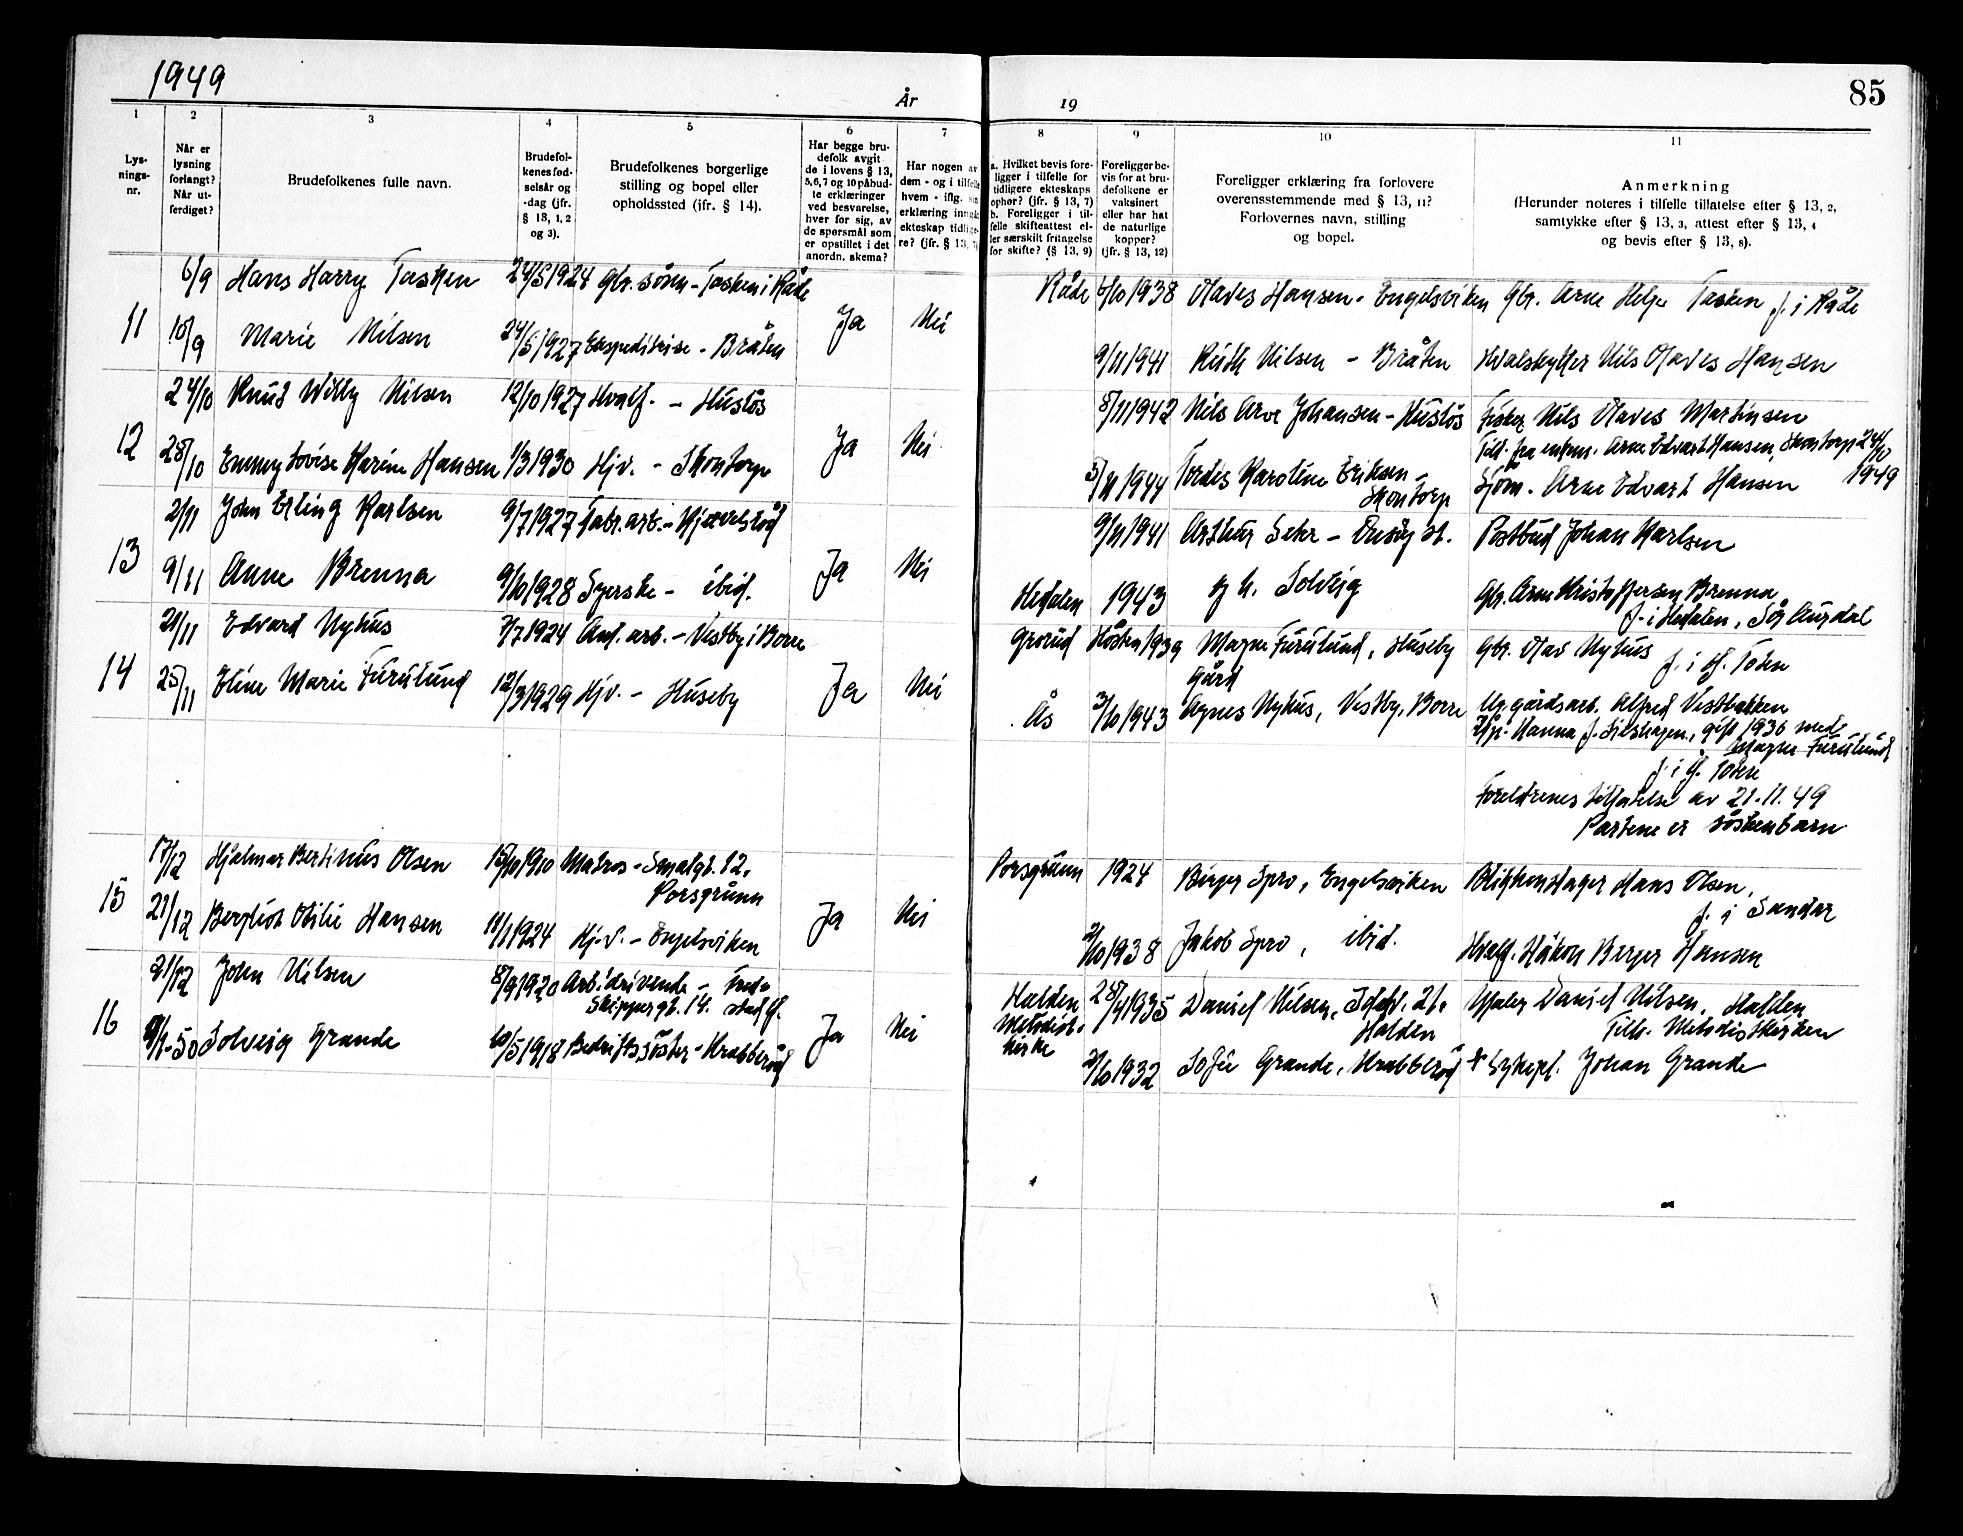 1949
År
19
85
1
Lys-
nings-
nr.
2
Når er
lysning
forlangt?
Når ut-
ferdiget?
3
Brudefolkenes fulle navn.
4
Brudefol-
kenes fød-
selsår og
-dag (jfr.
§ 13, 1, 2
og 3).
5
Brudefolkenes borgerlige
stilling og bopel eller
opholdssted (jfr. § 14).
6
Har begge bru-
defolk avgit
de i lovens § 13,
5,6,7 og 10 påbud-
te erklæringer
ved besvarelse,
hver for sig, av
de spørsmål som
er opstillet i det
anordn. skema?
7
Har nogen av
dem - og i tilfelle
hvem - iflg. sin
erklæring inngått
ekteskap tidlige-
re? (jfr. § 13, 7)
8
a. Hvilket bevis fore-
ligger i tilfelle for
tidligere ekteskaps
ophør? (jfr. § 13, 7)
b. Foreligger i til-
felle skifteattest el-
ler særskilt fritagelse
for skifte? (§ 13, 9)
9
Foreligger be-
vis for at bru-
defolkene er
vaksinert
eller har hat
de naturlige
kopper?
(jfr. § 13, 12)
10
Foreligger erklæring fra forlovere
overensstemmende med § 13, 11?
Forlovernes navn, stilling
og bopel.
11
Anmerkning
(Herunder noteres i tilfelle tillatelse efter § 13, 2,
samtykke efter § 13, 3, attest efter § 13, 4
og bevis efter § 13, 8).
6/9 Hans Harry Tasken 24/5 1924 Gbr. sønn - Tasken i Råde
Råde 6/10 1938 Olaves Hansen - Engelsviken Gbr. Arne Helge Tasken f. i Råde
11 10/9 Marie Nilsen 24/5 1927 Ekspeditrise - Bråten Ja Nei
9/11 1941 Ruth Nilsen - Bråten Hvalskytter Nils Olaves Hansen
24/10 Knut Willy Nilsen 12/10 1927 Hvalf. - Husløs
8/11 1942 Nils Arve Johansen - Husløs Fisker Nils Olaves Martinsen
12 28/10 Emmy Lovise Karine Hansen 1/3 1930 Hjv. - Skontorp Ja Nei
Till. fra enkem. Arne Edvart Hansen, Skontorp 24/10
1949
5/11 1944 Tordis Karoline Eriksen -
Skontorp
Sjøm. Arne Edvart Hansen
2/11 John Erling Karlsen 9/7 1927 Fabr. arb. - Kjærelsrød
9/11 1941 Arthur Sehr - Onsøy st. Postbud Johan Karlsen
13 9/11 Anne Brenna 9/10 1928 Syerske - ibid. Ja Nei
Hedalen 1943 og h. Solveig Gbr. Arne Kristoffersen Brenna
f. i Hedalen, Sør Aurdal
21/11 Edvard Nyhus 7/7 1924 Anl. arb. - Vestby i Borre
Grorud Høsten 1939 Magne Furulund, Huseby
Gård
Gbr. Olav Nyhus
f. i Ø. Toten
14 25/11 Eline Marie Furulund 12/3 1929 Hjv. - Huseby Ja Nei
Ås 3/10 1943 Agnes Nyhus, Vestby, Borre Ug. gårdsarb. Alfred Vestbakken
Hjp. Hanna f. Silshagen, gift 1936 med
Magne Furulund
f. i Ø. Toten
Foreldrenes tillatelse av 21.11.49
Partene er søskenbarn
17/12 Hjalmar Bertinus Olsen 15/10 1910 Matros - Smalgt. 12.
Porsgrunn
Porsgrunn 1924 Birger Spro, Engelsviken Blikkenslager Hans Olsen,
f. i Sandar
15 21/12 Bergliot Otilie Hansen 11/1 1924 Hj.v. - Engelsviken Ja Nei
2/10 1938 Jakob Spro, ibid. Hvalf. Håkon Berger Hansen
21/12 John Nilsen 8/9 1920 Arb. idrivende - Fred-
Skippergt. 14. stad Ø.
Halden
Metodist-
kirke
28/4 1935 Daniel Nilsen, 21.
Halden
Maler Daniel Nilsen, Halden
Tilh. Metodistkirken
16 9/1-50 Solveig Grande 10/5 1918 Bedriftssøster - Krabberød Ja Nei
2/10 1932 Sofie Grande, Krabberød Sykepl. Johan Grande